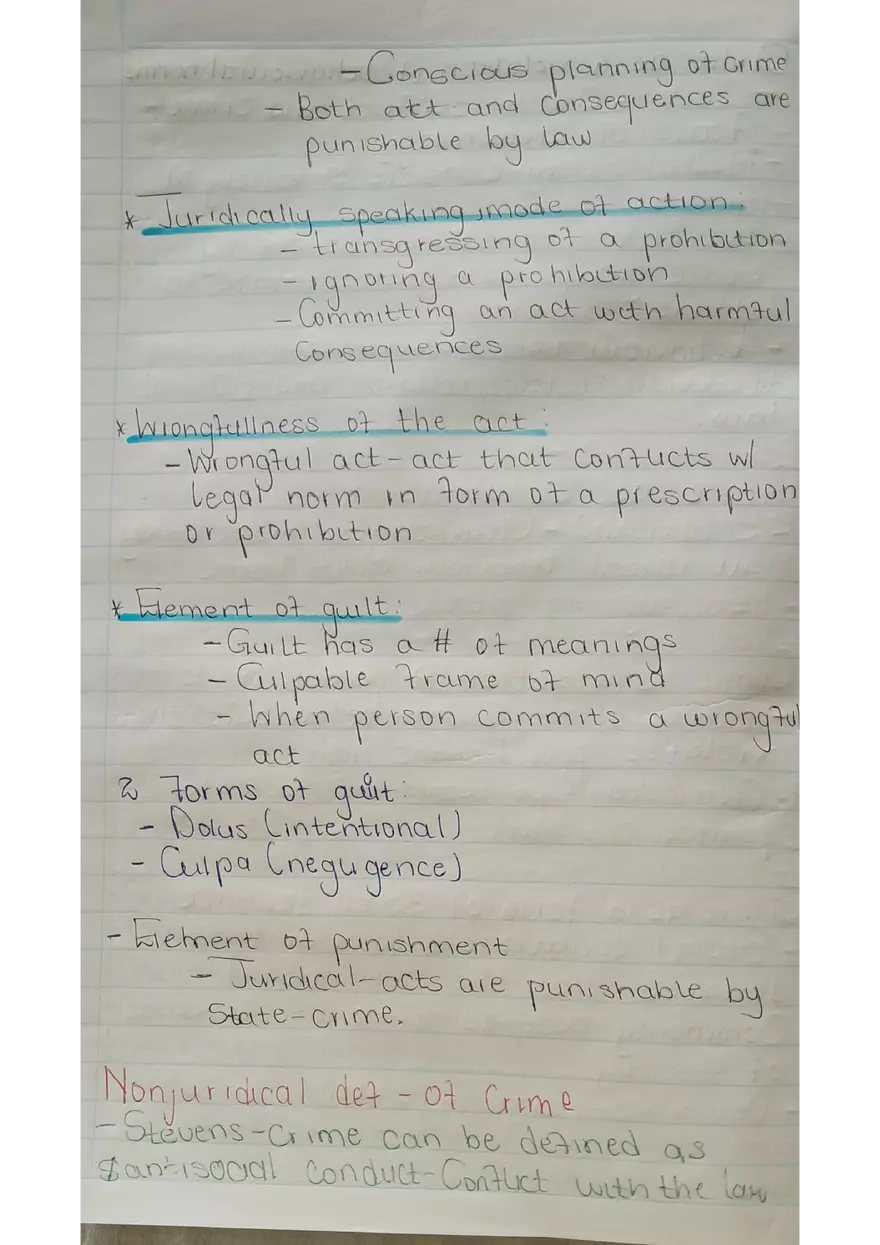 - Conscious planning of crime
- Both act and consequences are
punishable by law
* Juridically speaking, mode of action:
- transgressing of a prohibition
- ignoring a prohibition
- Committing an act with harmful
Consequences
* Wrongfullness of the act:
- Wrongful act - act that conflicts w/
legal norm in form of a prescription
or prohibition
* Element of guilt:
- Guilt has a # of meanings
- Culpable frame of mind
- When person commits a wrongful
act
2 forms of guilt:
- Dolus (intentional)
- Culpa (negligence)
- Element of punishment
- Juridical - acts are punishable by
State - crime.
Nonjuridical def - of Crime
- Stevens - Crime can be defined as
antisocial conduct - Conflict with the law